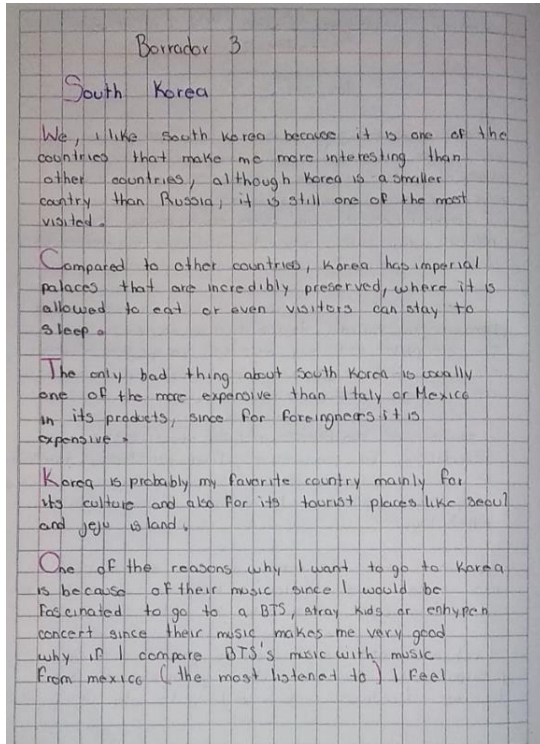 Borrador 3
South Korea
We, i like south korea because it is one of the
countries that make me more interesting than
other countries, although Korea is a smaller
country than Russia, it is still one of the most
visited.
Compared to other countries, Korea has imperial
palaces that are incredibly preserved, where it is
allowed to eat or even visitors can stay to
sleep.
The only bad thing about South Korea is usually
one of the more expensive than Italy or Mexico
in its products, since for foreingners it is
expensive.
Korea is probably my favorite country mainly for
its culture and also for its tourist places like seoul
and jeju island.
One of the reasons why I want to go to Korea
is because of their music since I would be
fascinated to go to a BTS, stray kids or enhypen
concert since their music makes me very good
why if I compare BTS's music with music
from mexico (the most listenat to) I feel